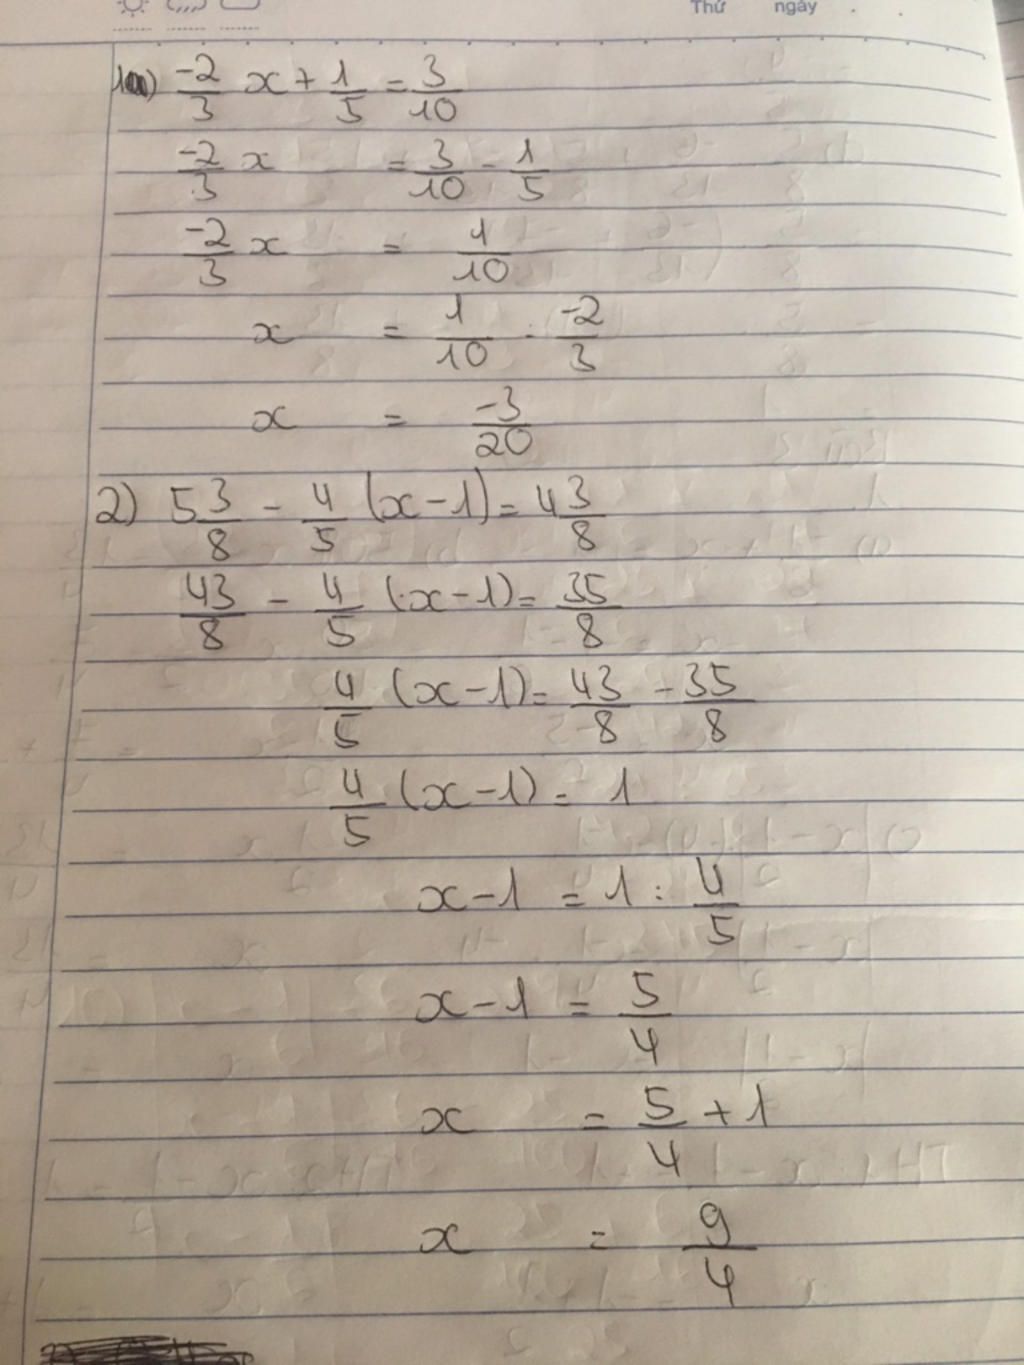 Thứ ngày
1) -2/3 x + 1/5 = 3/10
-2/3 x = 3/10 - 1/5
-2/3 x = 1/10
x = 1/10 : -2/3
x = -3/20
2) 5 3/8 - 4/5 (x-1) = 4 3/8
43/8 - 4/5 (x-1) = 35/8
4/5 (x-1) = 43/8 - 35/8
4/5 (x-1) = 1
x-1 = 1 : 4/5
x-1 = 5/4
x = 5/4 + 1
x = 9/4